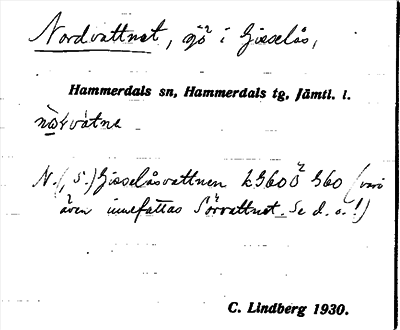 Nordvattnet, sjö i Gisselås,
Hammerdals sn, Hammerdals tg, Jämtl. l.
N.(, S.) Gisselåsvattnen k G60 Ö G60 (vari
även innefattas Sörvattnet. Se d. o.!)
C. Lindberg 1930.